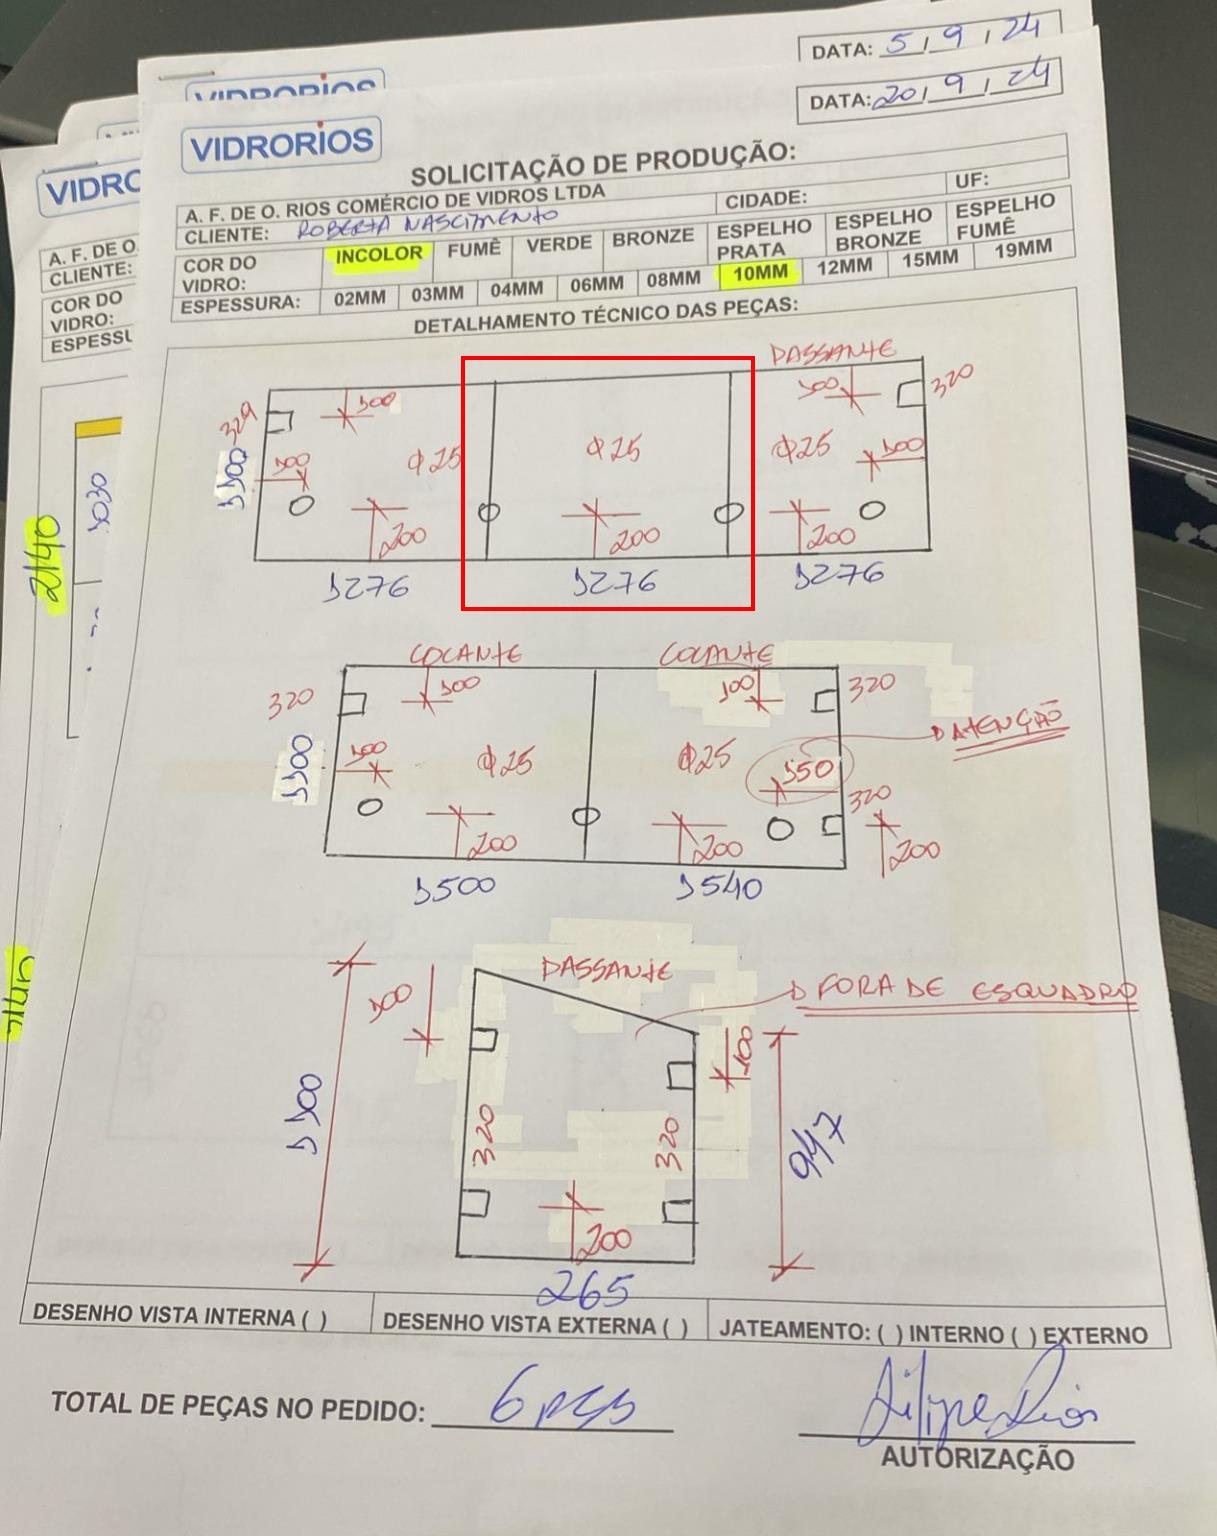 DATA: 5/9/24
VIDRORIOS
DATA: 20/9/24
VIDRORIOS
VIDRO
SOLICITAÇÃO DE PRODUÇÃO:
A. F. DE O. RIOS COMÉRCIO DE VIDROS LTDA CIDADE: UF:
CLIENTE: ROBERTA NASCIMENTO
COR DO VIDRO: INCOLOR FUMÊ VERDE BRONZE ESPELHO PRATA ESPELHO BRONZE ESPELHO FUMÊ
ESPESSURA: 02MM 03MM 04MM 06MM 08MM 10MM 12MM 15MM 19MM
A. F. DE O.
CLIENTE:
COR DO
VIDRO:
ESPESSU
DETALHAMENTO TÉCNICO DAS PEÇAS:
PASSANTE
329 100 100 320
1100 100 Φ25 Φ25 Φ25 100
200 200 200
1276 1276 1276
1030
2140
COLANTE COLANTE
320 100 100 320
1100 100 Φ25 Φ25 150 ATENÇÃO
320
200 200 200
1500 1540
PASSANTE
FORA DE ESQUADRO
100 100
1100 320 320 947
200
265
DESENHO VISTA INTERNA ( ) DESENHO VISTA EXTERNA ( ) JATEAMENTO: ( ) INTERNO ( ) EXTERNO
TOTAL DE PEÇAS NO PEDIDO: 6 pçs
Filipe Rios
AUTORIZAÇÃO